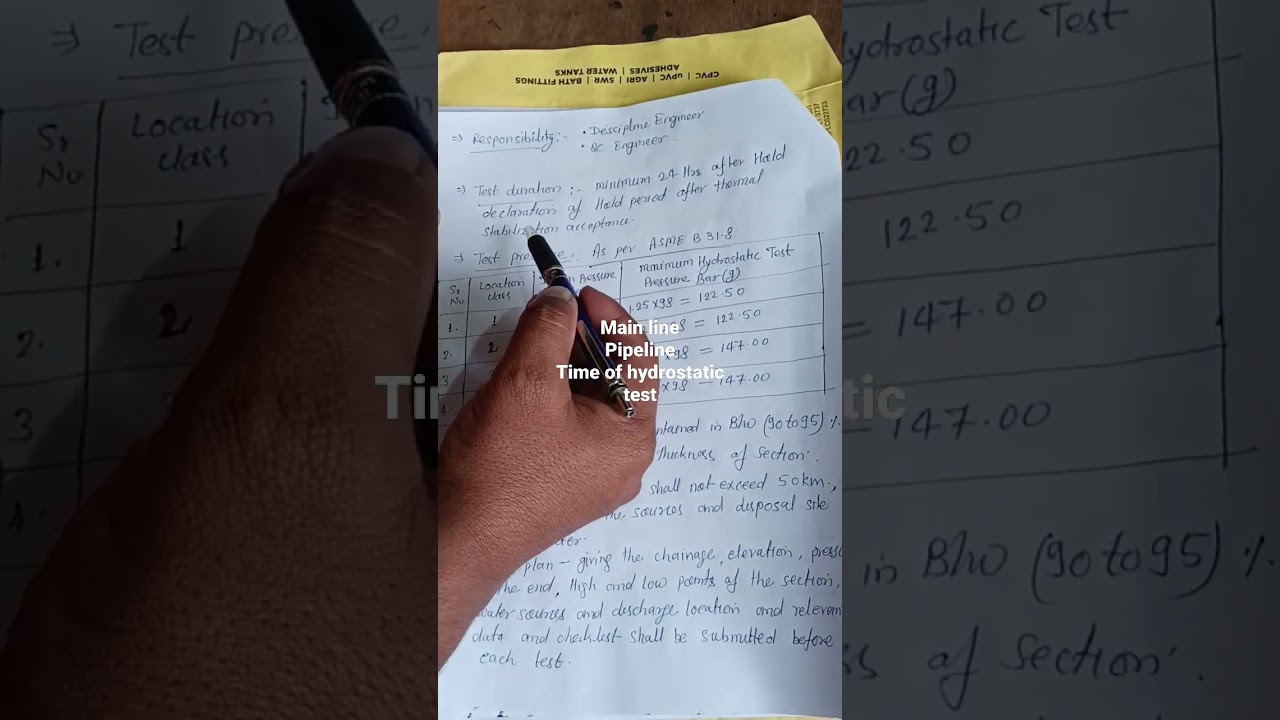 CPVC | uPVC | AGRI | SWR | BATH FITTINGS
ADHESIVES | WATER TANKS
⇒ Responsibility:- • Descipline Engineer
• QC Engineer.
⇒ Test duration :- minimum 24 Hrs after Hold
declaration of Hold period after thermal
stabilization acceptance.
⇒ Test As per ASME B 31.8
Sr No Location class Pressure minimum Hydrostatic Test Pressure Bar(g)
1. 1 1.25 x 98 = 122.50
2. 2 98 = 122.50
3 x 98 = 147.00
x 98 = 147.00
Main line
Pipeline
Time of hydrostatic
test
in Bhw (90 to 95) %
thickness of section.
shall not exceed 50km.,
the sources and disposal site
plan – giving the chainage, elevation,
the end, High and low points of the section,
water sources and discharge location and
data and checklist shall be submitted before
each test.